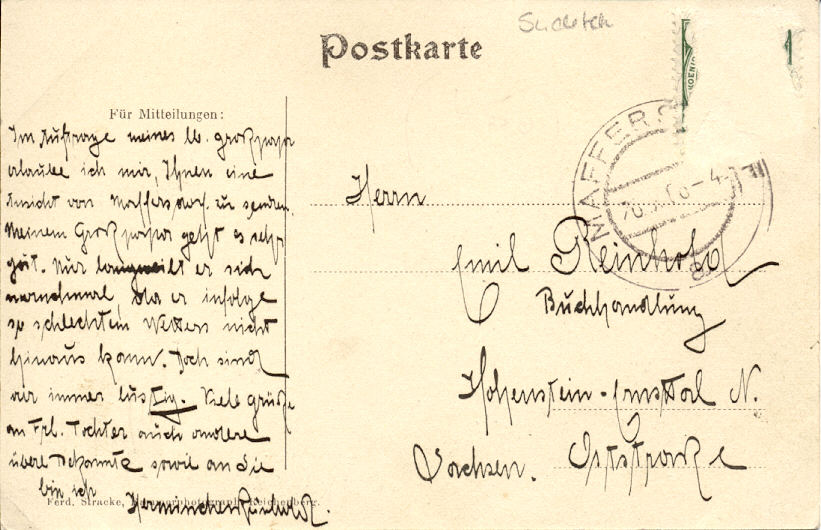 Sudeten
Postkarte
KOENIG
MAFFERSDORF
Für Mitteilungen:
Im Auftrage meines lb. Großpapa
erlaube ich mir, Ihnen eine
Ansicht von Maffersdorf zu senden.
Meinem Großpapa geht es sehr
gut. Nur langweilt er sich
manchmal, da er infolge
so schlechten Wetters nicht
hinaus kann. Doch sind
wir immer lustig. Viele Grüße
an Frl. Tochter auch andere
übere Bekannte sowie an Sie
bin ich
Herminchen
Herrn
Emil Reinhold
Buchhandlung
Hohenstein-Ernstthal N.
Sachsen. Oststraße
Ferd. Stracke, Kammerphotograph, Reichenberg.